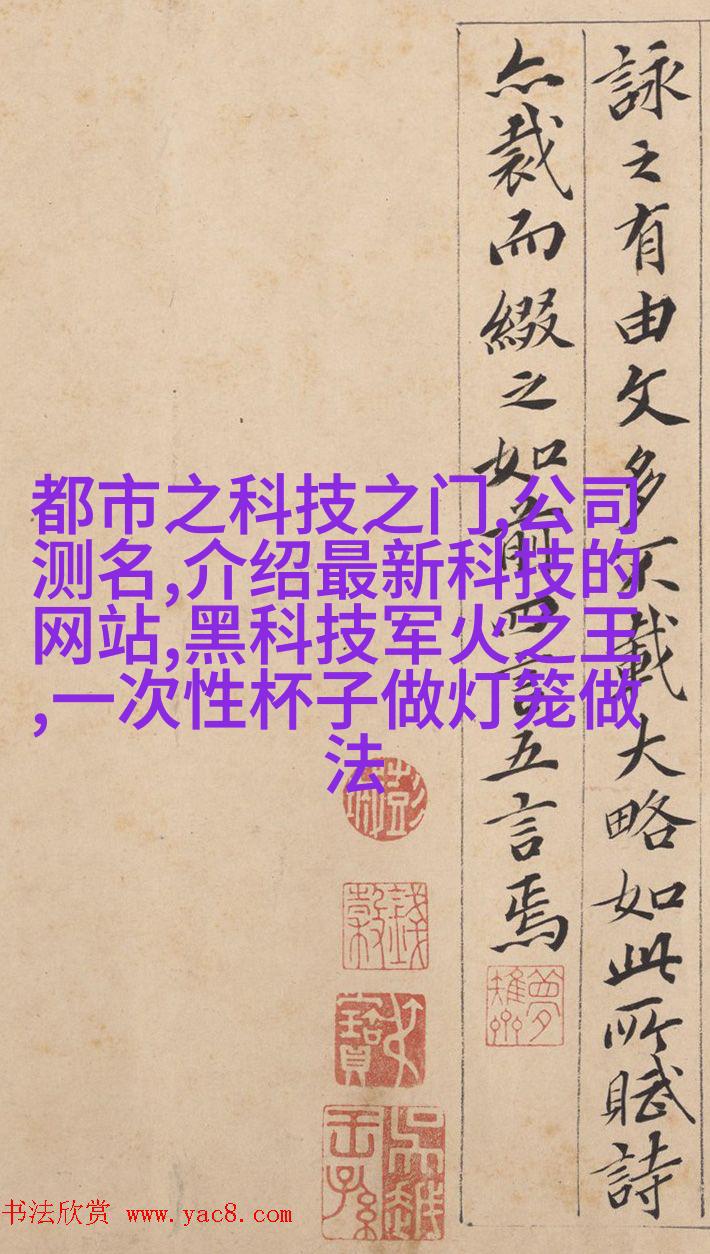 詠之有由文多不載大略如此所賦詩
亦裁而綴之如前四言五言焉
都市之科技之门,公司
测名,介绍最新科技的
网站,黑科技军火之王
,一次性杯子做灯笼做
法
书法欣赏 www.yac8.com